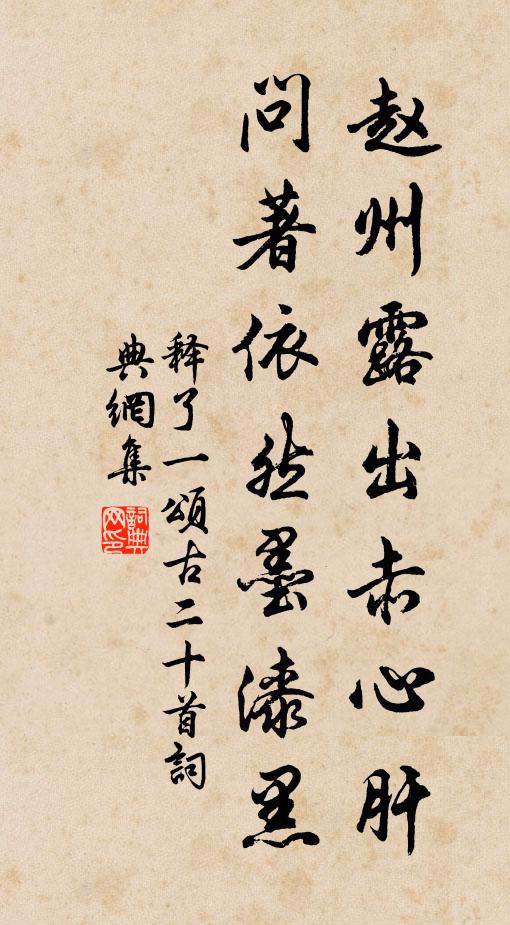 赵州露出赤心肝
问著依然墨漆黑
释了一颂古二十首詞
典網集
詞典网印